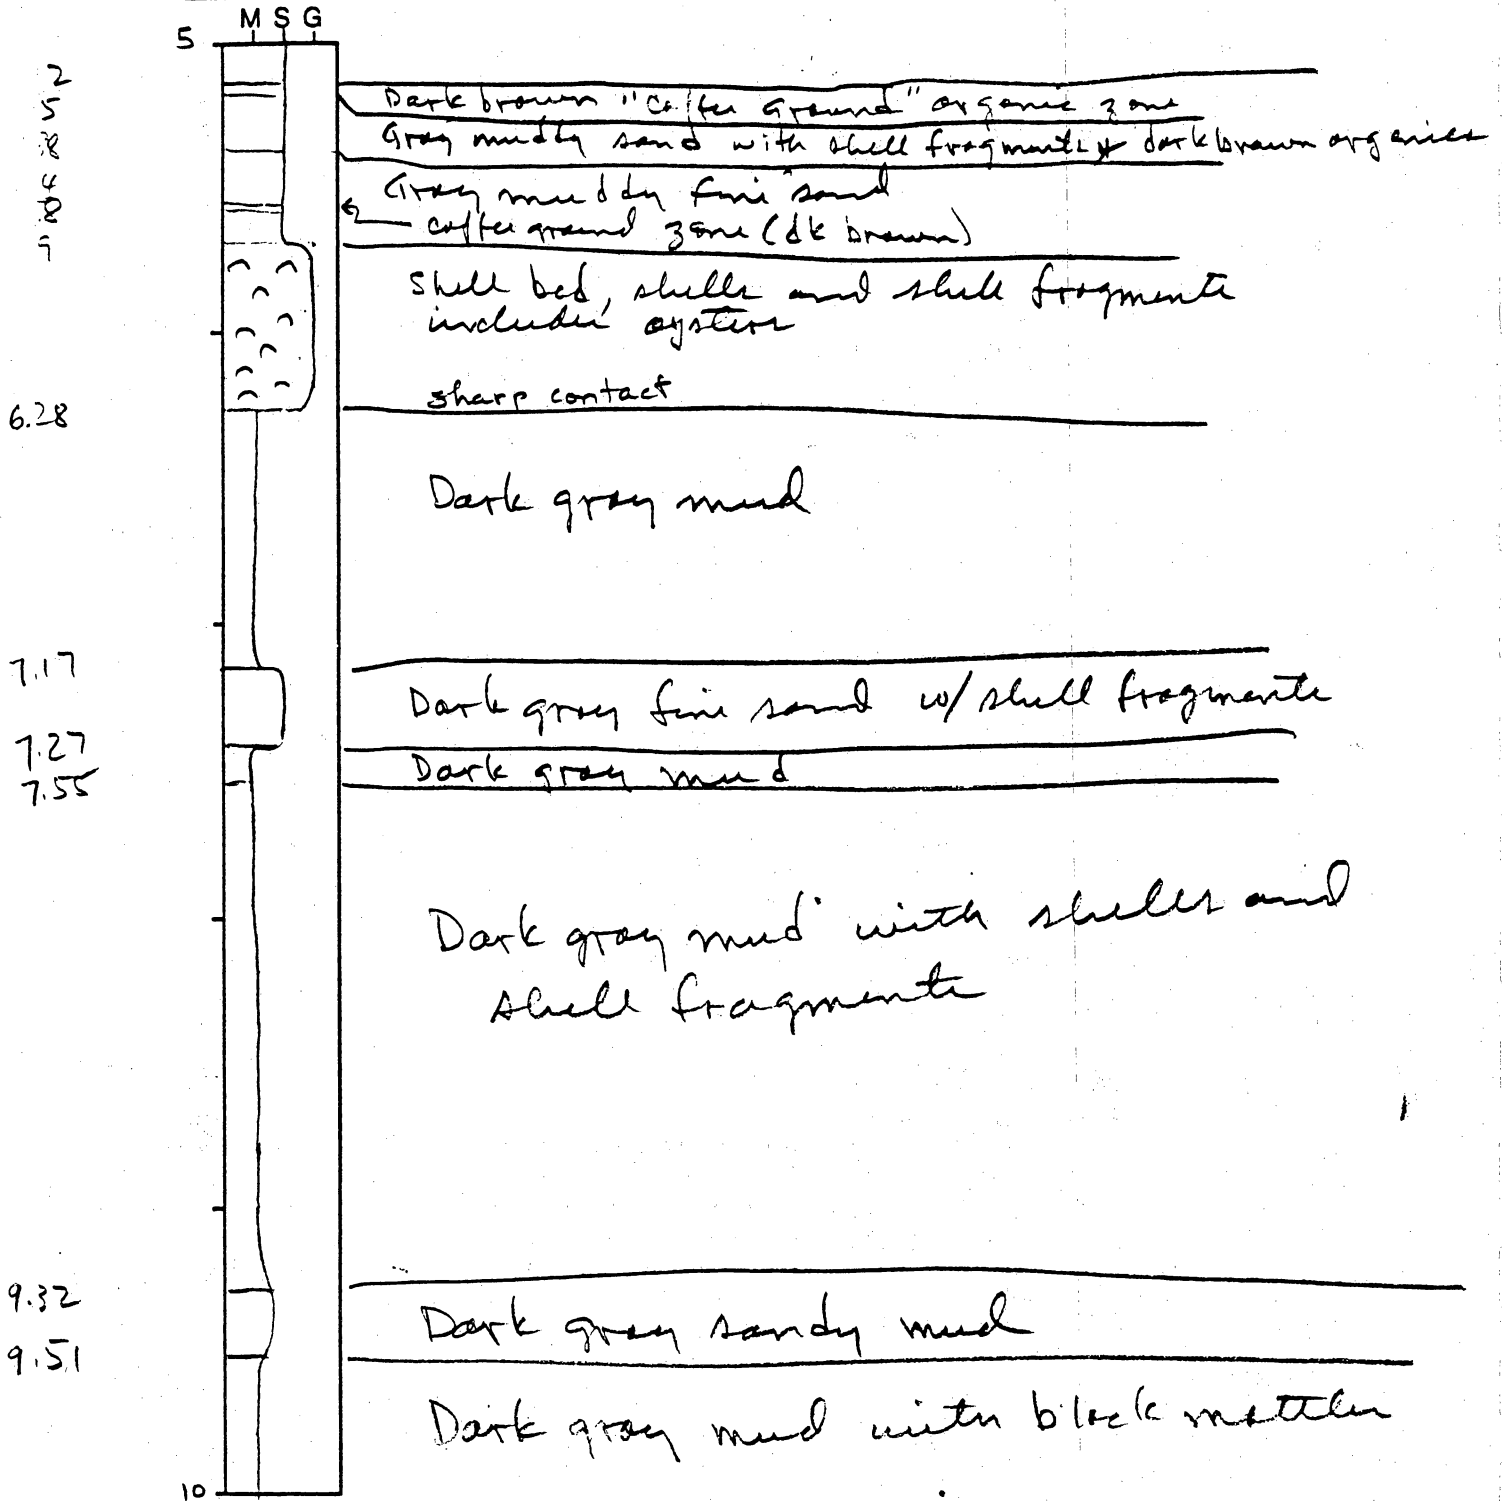 M S G
5
2
5
8
4
8
9
Dark brown "Coffee Ground" organic zone
Gray muddy sand with shell fragments & dark brown organics
Gray muddy fine sand
coffee ground zone (dk brown)
shell bed, shells and shell fragments
includes oysters
sharp contact
6.28
Dark gray mud
7.17
Dark gray fine sand w/ shell fragments
7.27
Dark gray mud
7.55
Dark gray mud with shells and
shell fragments
9.32
Dark gray sandy mud
9.51
Dark gray mud with black mottles
10